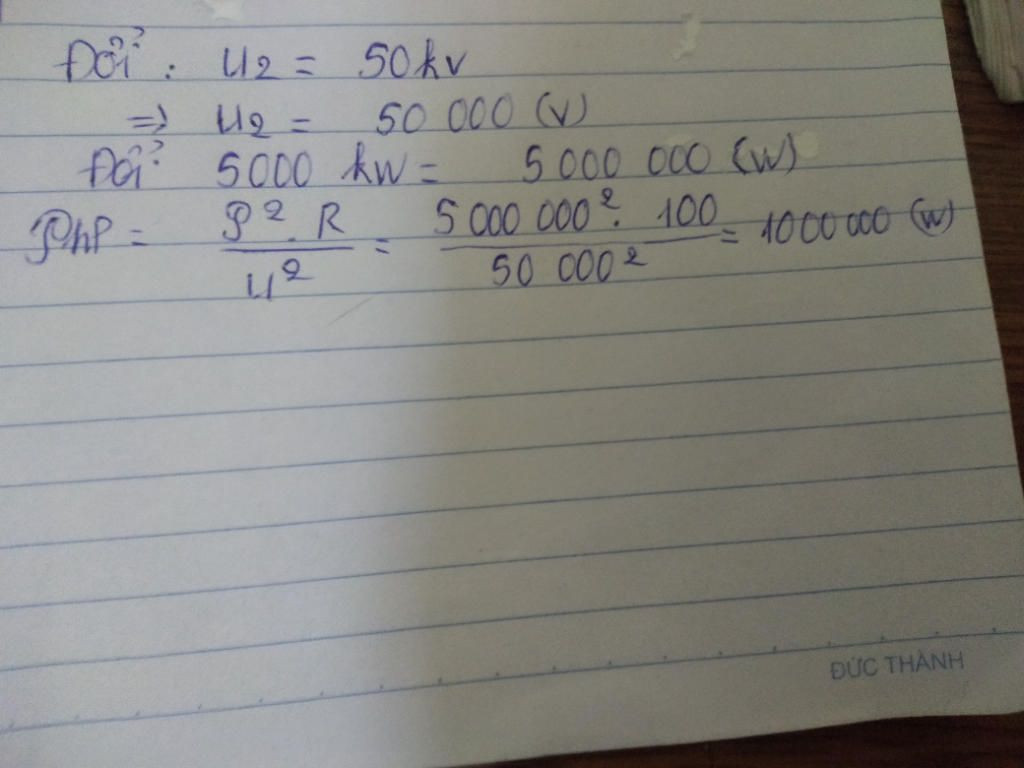 Đổi : U2 = 50kv
=> U2 = 50 000 (V)
Đổi 5000 kW = 5 000 000 (W)
Php = P². R / U² = 5 000 000². 100 / 50 000² = 1000 000 (W)
ĐỨC THÀNH